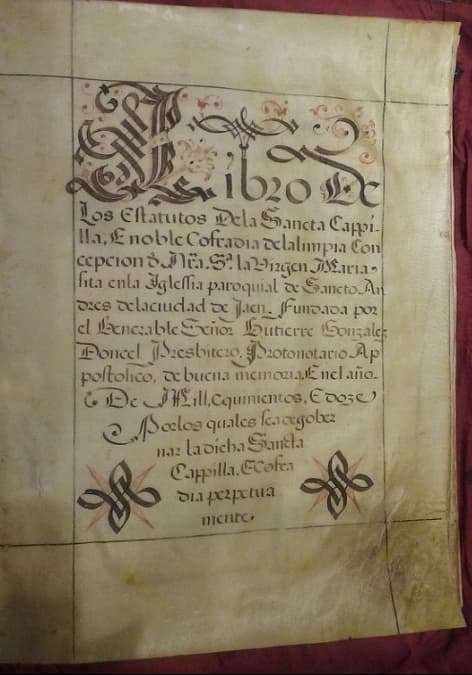 Libro De
Los Estatutos Dela Sancta Cappi-
lla, E noble Cofradia delalimpia Con
cepcion đ Nrã. Sª. la Virgen Maria,
sita enla Iglessia paroquial de Sancto An
dres delaciudad de Jaen. Fundada por
el Venerable Señor Gutierre Gonzalez
Doncel Presbitero, Protonotario Ap
postolico, de buena memoria, En el año
De Mill, E quinientos, E doze
Por los quales sea degober
nar la dicha Sancta
Cappilla, E Cofra
dia perpetua
mente.